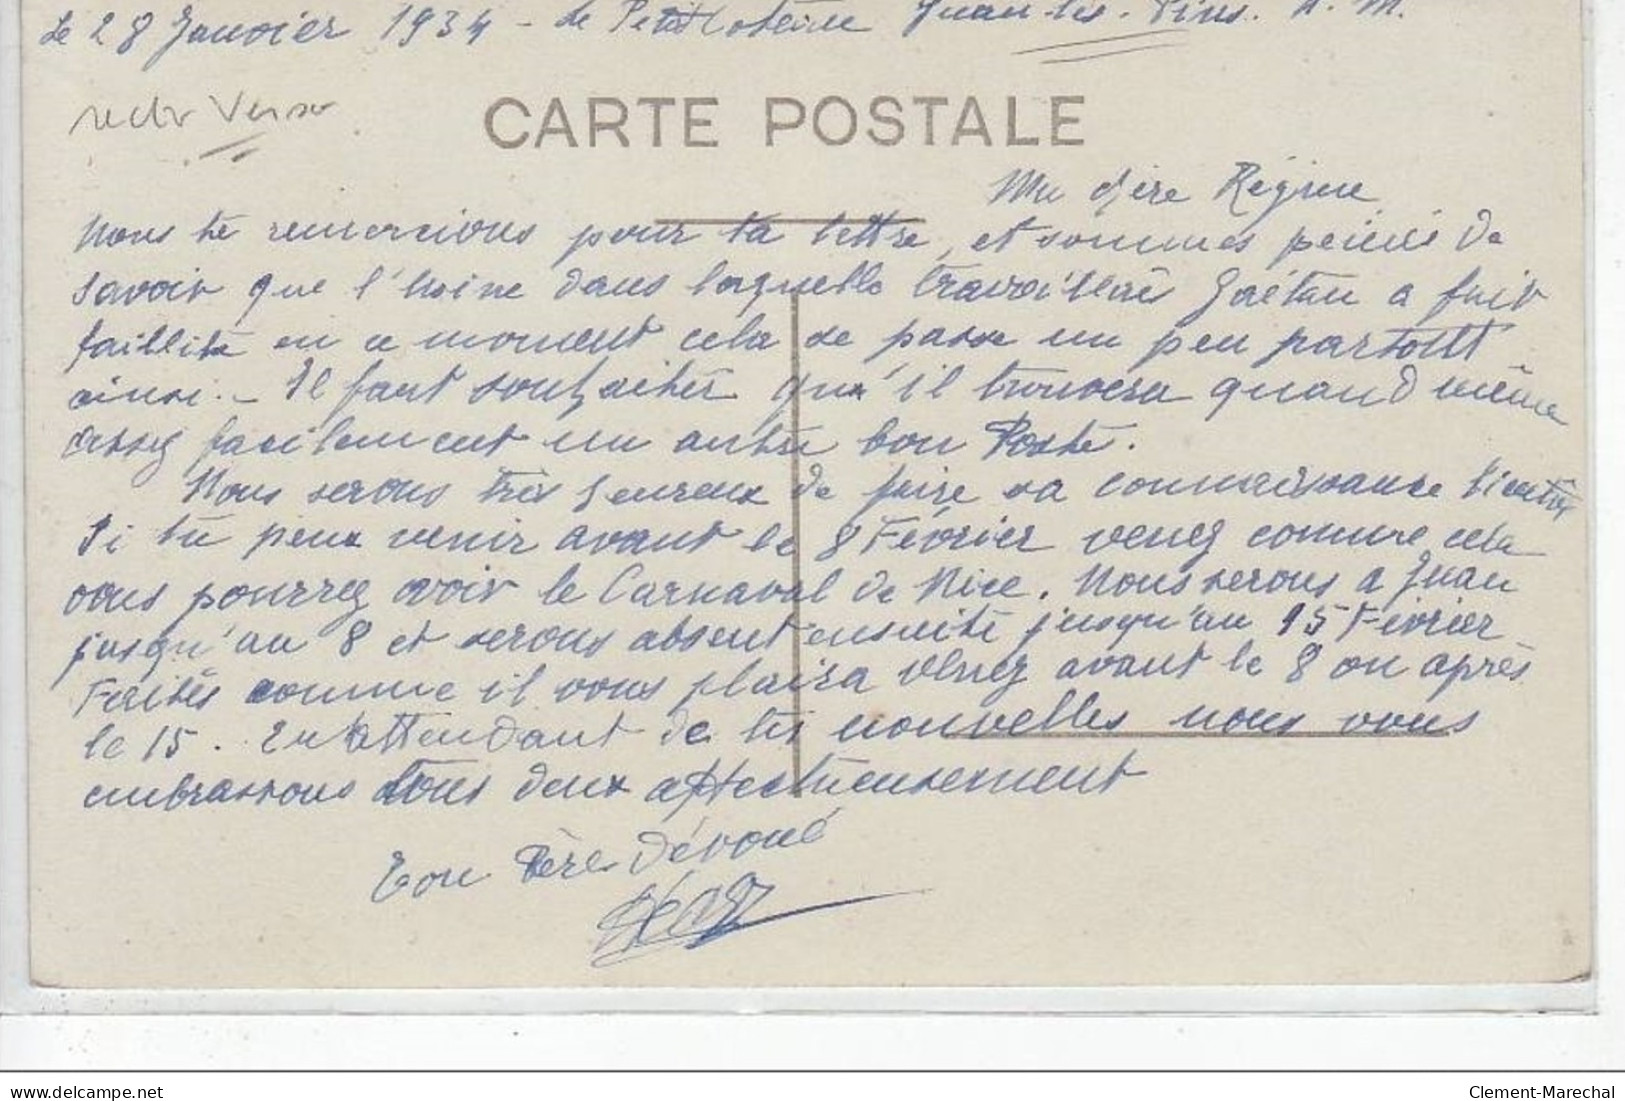 le 28 Janvier 1934 - Le Petit Juan-les-Pins. A. M.
recto Verso
CARTE POSTALE
Ma chère Régine
Nous te remercions pour ta lettre, et sommes peinés de
savoir que l'usine dans laquelle travaillait Gaëtan a fait
faillite en ce moment cela se passe un peu partout
ainsi. - Il faut souhaiter qu'il trouvera quand même
assez facilement un autre bon Poste.
Nous serons très heureux de faire sa connaissance
Si tu peux venir avant le 8 Février venez comme cela
vous pourrez voir le Carnaval de Nice. Nous serons a Juan
jusqu'au 8 et serons absent ensuite jusqu'au 15 Février
Faites comme il vous plaira venez avant le 8 ou après
le 15. En attendant de tes nouvelles nous vous
embrassons tous deux affectueusement
Ton Père Dévoué
delcampe.net
Clement-Marechal